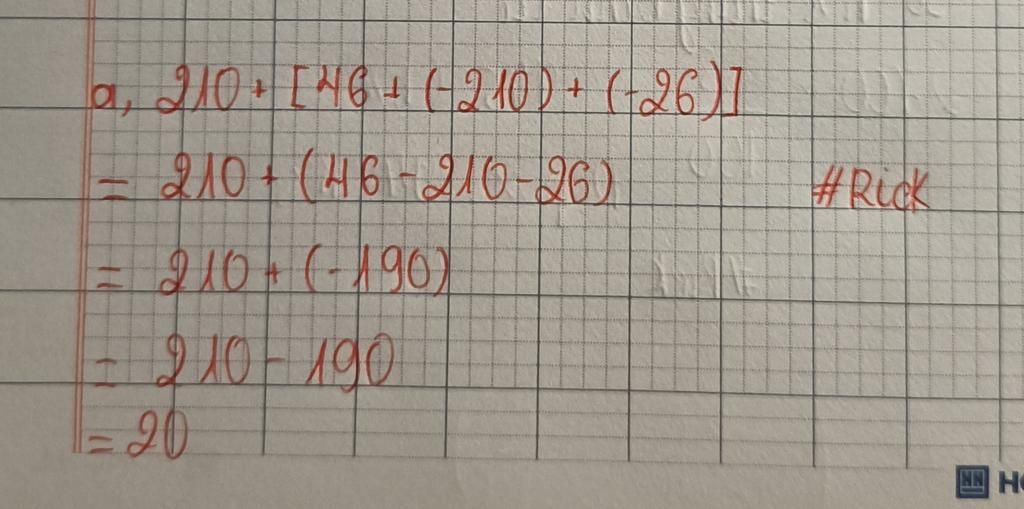 a, 210 + [46 + (-210) + (-26)]
= 210 + (46 - 210 - 26)
#Rick
= 210 + (-190)
= 210 - 190
= 20